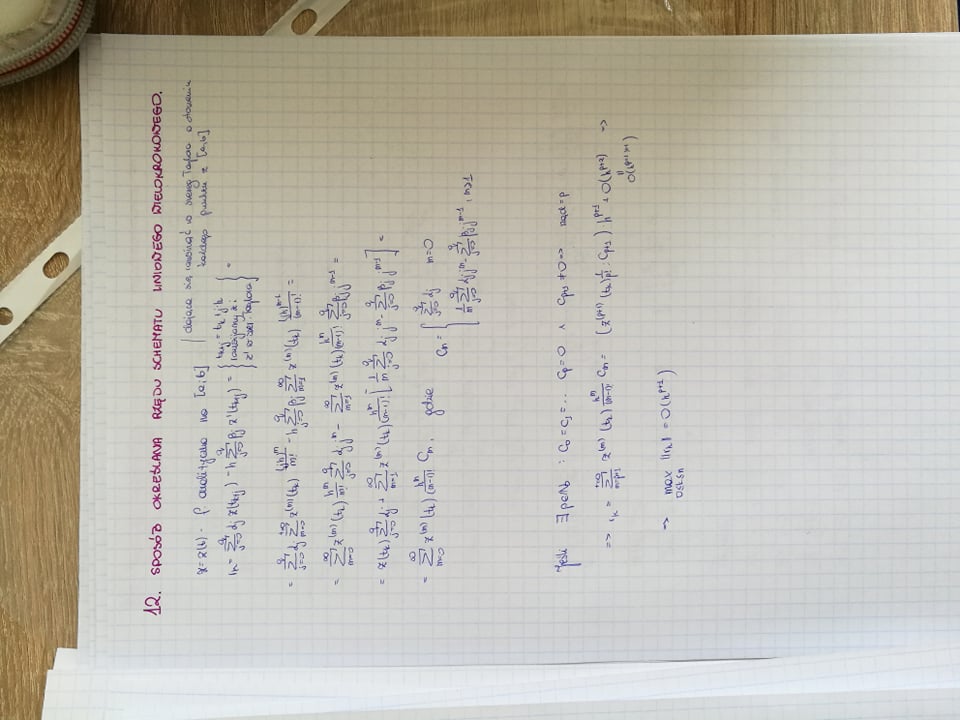 12. SPOSÓB OKREŚLANIA RZĘDU SCHEMATU LINIOWEGO WIELOKROKOWEGO.
z = z(t) - f. analityczna na [a,b] | dająca się rozwinąć w szereg Taylora w otoczeniu każdego punktu z [a,b]
r_k = \sum_{j=0}^{q} α_j z(t_{k+j}) - h \sum_{j=0}^{q} β_j z'(t_{k+j}) = { t_{k+j} = t_k + j·h rozwijamy z i z' w szer. Taylora } =
= \sum_{j=0}^{q} α_j \sum_{m=0}^{+∞} z^{(m)}(t_k) \frac{(jh)^m}{m!} - h \sum_{j=0}^{q} β_j \sum_{m=1}^{∞} z^{(m)}(t_k) \frac{(jh)^{m-1}}{(m-1)!} =
= \sum_{m=0}^{∞} z^{(m)}(t_k) \frac{h^m}{m!} \sum_{j=0}^{q} α_j j^m - \sum_{m=1}^{∞} z^{(m)}(t_k) \frac{h^m}{(m-1)!} \sum_{j=0}^{q} β_j j^{m-1} =
= z(t_k) \sum_{j=0}^{q} α_j + \sum_{m=1}^{∞} z^{(m)}(t_k) \frac{h^m}{(m-1)!} [ \frac{1}{m} \sum_{j=0}^{q} α_j j^m - \sum_{j=0}^{q} β_j j^{m-1} ] =
= \sum_{m=0}^{∞} z^{(m)}(t_k) \frac{h^m}{(m-1)!} C_m, gdzie C_m = { \sum_{j=0}^{q} α_j m=0
\frac{1}{m} \sum_{j=0}^{q} α_j j^m - \sum_{j=0}^{q} β_j j^{m-1}, m≥1
Jeśli ∃ p∈ℕ : C_0 = C_1 = .. C_p = 0 ∧ C_{p+1} ≠ 0 => rząd = p
=> r_k = \sum_{m=p+1}^{+∞} z^{(m)}(t_k) \frac{h^m}{(m-1)!} C_m = (z^{(p+1)}(t_k) \frac{1}{p!} · C_{p+1}) · h^{p+1} + O(h^{p+2}) =>
|| O(h^{p+1+1})
=> max_{0≤k≤n} ||r_k|| = O(h^{p+1})